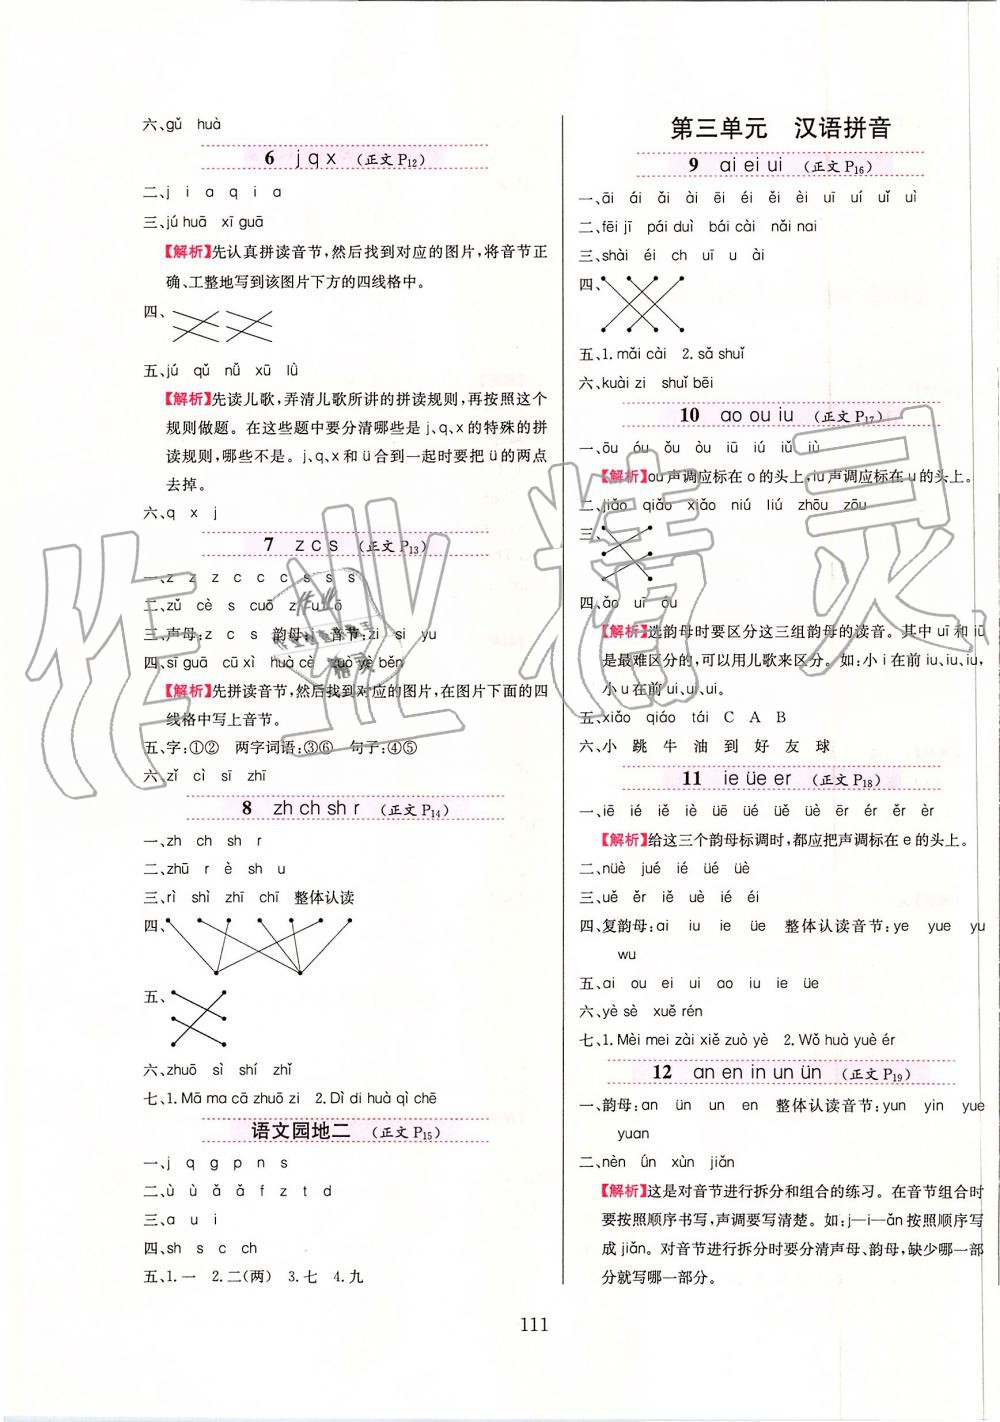 六、gǔ huà
6 j q x (正文 P12)
二、j i a q i a
三、jú huā xī guā
【解析】先认真拼读音节,然后找到对应的图片,将音节正
确、工整地写到该图片下方的四线格中。
四、
五、jú qǔ nǚ xū lǜ
【解析】先读儿歌,弄清儿歌所讲的拼读规则,再按照这个
规则做题。在这些题中要分清哪些是 j、q、x 的特殊的拼
读规则,哪些不是。j、q、x 和 ü 合到一起时要把 ü 的两点
去掉。
六、q x j
7 z c s (正文 P13)
一、z z z c c c s s s
二、zǔ cè s cuō z u ō
三、声母:z c s 韵母: 音节:zi si yu
四、sī guā cū xì huà cè zuò yè běn
【解析】先拼读音节,然后找到对应的图片,在图片下面的四
线格中写上音节。
五、字:①② 两字词语:③⑥ 句子:④⑤
六、zǐ cì sī zhī
8 zh ch sh r (正文 P14)
一、zh ch sh r
二、zhū r è sh u
三、rì shì zhī chī 整体认读
四、
五、
六、zhuō sì shí zhǐ
七、1. Mā ma cā zhuō zi 2. Dì di huà qì chē
语文园地二 (正文 P15)
一、j q g p n s
二、ù ù ǎ ǎ f z t d
三、a u i
四、sh s c ch
五、1. 一 2. 二(两) 3. 七 4. 九
第三单元 汉语拼音
9 ai ei ui (正文 P16)
一、āi ái ǎi ài ēi éi ěi èi uī uí uǐ uì
二、fēi jī pái duì bái cài nǎi nai
三、shài éi ch uī u ài
四、
五、1. mǎi cài 2. sǎ shuǐ
六、kuài zi shuǐ bēi
10 ao ou iu (正文 P17)
一、ōu óu ǒu òu iū iú iǔ iù
【解析】ou 声调应标在 o 的头上,iu 声调应标在 u 的头上。
二、jiǎo qiǎo xiǎo niú liú zhōu zōu
三、
四、ǎo uī óu
【解析】选韵母时要区分这三组韵母的读音。其中 uī 和 iū
是最难区分的,可以用儿歌来区分。如:小 i 在前 iu、iu、iu,
小 u 在前 ui、ui、ui。
五、xiǎo qiáo tái C A B
六、小 跳 牛 油 到 好 友 球
11 ie üe er (正文 P18)
一、iē ié iě iè üē üé üě üè ēr ér ěr èr
【解析】给这三个韵母标调时,都应把声调标在 e 的头上。
二、nüè jué ié üé üè
三、uě ěr iě uè ié éi
四、复韵母:ai iu ie üe 整体认读音节:ye yue yu
wu
五、ai ou ei ui ao iu ie üe
六、yè sè xuě rén
七、1. Mèi mei zài xiě zuò yè 2. Wǒ huà yuè ér
12 an en in un ün (正文 P19)
一、韵母:an ün un en 整体认读音节:yun yin yue
yuan
二、nèn ǘn xùn jiǎn
【解析】这是对音节进行拆分和组合的练习。在音节组合时
要按照顺序书写,声调要写清楚。如:j—i—ǎn 按照顺序写
成 jiǎn。对音节进行拆分时要分清声母、韵母,缺少哪一部
分就写哪一部分。
111
作业精灵